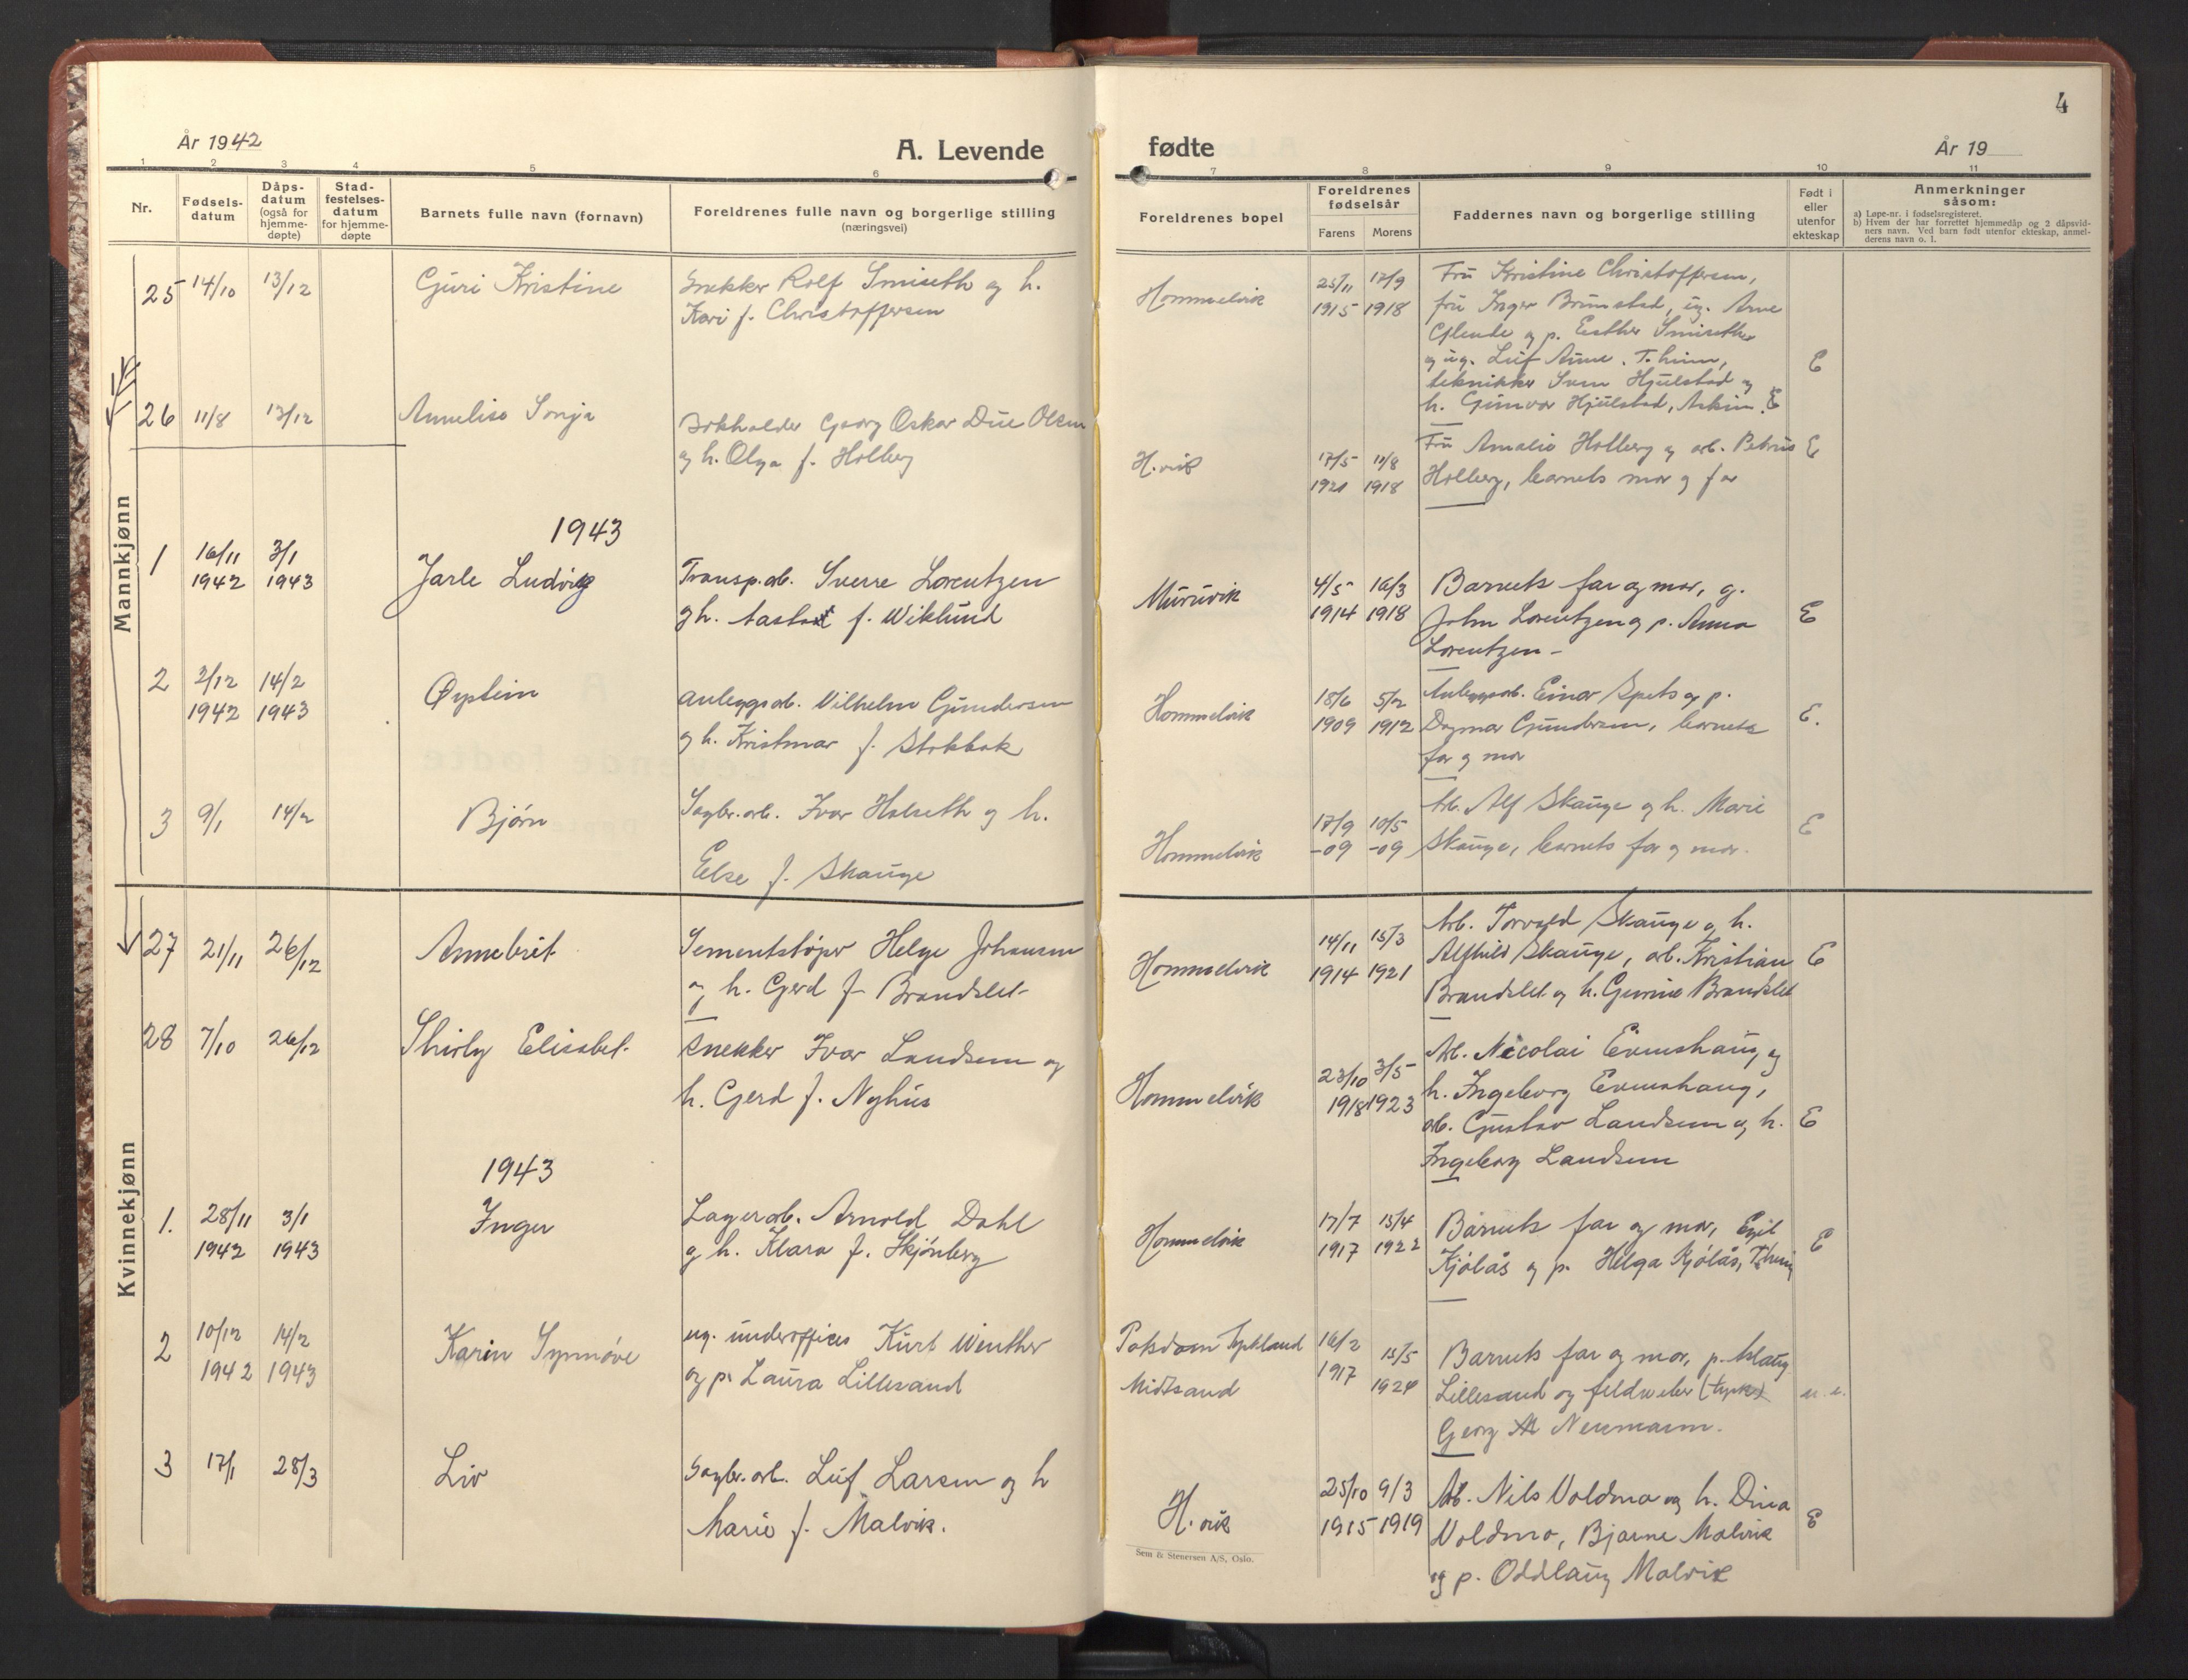 4
År 1942
A. Levende
fødte
År 19
1 2 3 4 5 6
7 8 9 10 11
Nr.
Fødsels-
datum
Dåps-
datum
(også for
hjemme-
døpte)
Stad-
festelses-
datum
for hjemme-
døpte
Barnets fulle navn (fornavn)
Foreldrenes fulle navn og borgerlige stilling
(næringsvei)
Foreldrenes bopel
Foreldrenes
fødselsår
Farens Morens
Faddernes navn og borgerlige stilling
Født i
eller
utenfor
ekteskap
Anmerkninger
såsom:
a) Løpe-nr. i fødselsregisteret.
b) Hvem der har forrettet hjemmedåp og 2 dåpsvid-
ners navn. Ved barn født utenfor ekteskap, anmel-
derens navn o. l.
Mannkjønn
25 14/10 13/12 Guri Kristine
Snekker Rolf Smiseth og h.
Kari f. Christoffersen
Hommelvik
25/11 17/9
1915 1918
Fru Kristine Christoffersen,
fru Inger Brumstad, ug. Arne
Glende og p. Esther Smiseth
og ug. Leif Aune, T.heim,
tekniker Sven Hjulstad og
h. Gunvor Hjulstad, Askim. E
E
26 11/8 13/12 Annelise Sonja
Bokholder Georg Oskar Due Olsen
og h. Olga f. Holberg
H.vik
17/5 11/8
1921 1918
Fru Amalie Holberg og arb. Petrus E
Holberg, barnets mor og far
1943
1 16/11 3/1 Jarle Ludvig
1942 1943
Transp.arb. Sverre Lorentzen
og h. Aasta f. Wiklund
Muruvik
4/5 16/3
1914 1918
Barnets far og mor, g.
John Lorentzen og p. Anna E
Lorentzen -
2 2/12 14/2 Øystein
1942 1943
Anleggsarb. Vilhelm Gundersen
og h. Kristmar f. Stokbak
Hommelvik
18/6 5/2
1909 1912
Anleggsarb. Einar Spets og p.
Dagmar Gundersen, barnets E.
far og mor
3 9/1 14/2 Bjørn
Sagbr.arb. Ivar Halseth og h.
Else f. Skauge
Hommelvik
17/9 10/5
-09 -09
Arb. Alf Skauge og h. Marie E
Skauge, barnets far og mor.
Kvinnekjønn
27 21/11 26/12 Annebrit
Sementstøper Helge Johansen
og h. Gerd f. Brandslet
Hommelvik
14/11 15/3
1914 1921
Arb. Torvald Skauge og h.
Alfhild Skauge, arb. Kristian E
Brandslet og h. Gurine Brandslet
28 7/10 26/12 Shirly Elisabet
Snekker Ivar Landsem og
h. Gerd f. Nyhus
Hommelvik
23/10 3/5
1918 1923
Arb. Nicolai Evenshaug og
h. Ingeborg Evenshaug,
arb. Gustav Landsem og h. E
Ingeborg Landsem
1943
1. 28/11 3/1 Inger
1942 1943
Lagerarb. Arnold Dahl
og h. Klara f. Skjønberg
Hommelvik
17/7 15/4
1917 1922
Barnets far og mor, Egil E
Kjølås og p. Helga Kjølås, T.heim
2 10/12 14/2 Karin Synnøve
1942 1943
ug. underoffiser Kurt Winther
og p. Laura Lillesand
Potsdam Tyskland
Midtsand
16/2
1917
15/5
1924
Barnets far og mor, p. Aslaug
Lillesand og feldweber (tysk) u. e.
Georg Neumann.
3 17/1 28/3 Liv
Sagbr.arb. Leif Larsen og h
Marie f. Malvik.
H.vik
25/10 9/3
1915 1919
Arb. Nils Voldmo og h. Dina
Voldmo, Bjarne Malvik E
og p. Oddlaug Malvik
Sem & Stenersen A/S, Oslo.